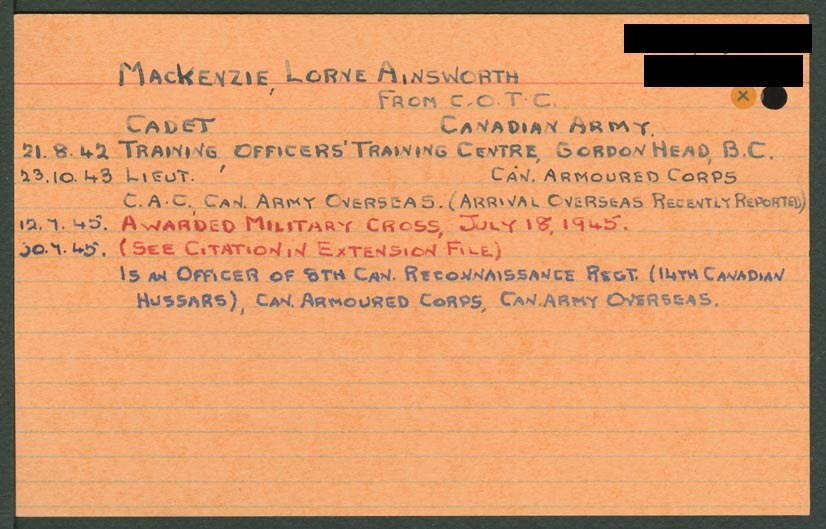 MACKENZIE, LORNE AINSWORTH
FROM C.O.T.C.
CADET CANADIAN ARMY.
21.8.42 TRAINING OFFICERS' TRAINING CENTRE, GORDON HEAD, B.C.
23.10.43 LIEUT. CAN. ARMOURED CORPS
C.A.C. CAN. ARMY OVERSEAS. (ARRIVAL OVERSEAS RECENTLY REPORTED)
12.7.45. AWARDED MILITARY CROSS, JULY 18, 1945.
30.7.45. (SEE CITATION IN EXTENSION FILE)
IS AN OFFICER OF 8TH CAN. RECONNAISSANCE REGT. (14TH CANADIAN
HUSSARS), CAN. ARMOURED CORPS, CAN. ARMY OVERSEAS.